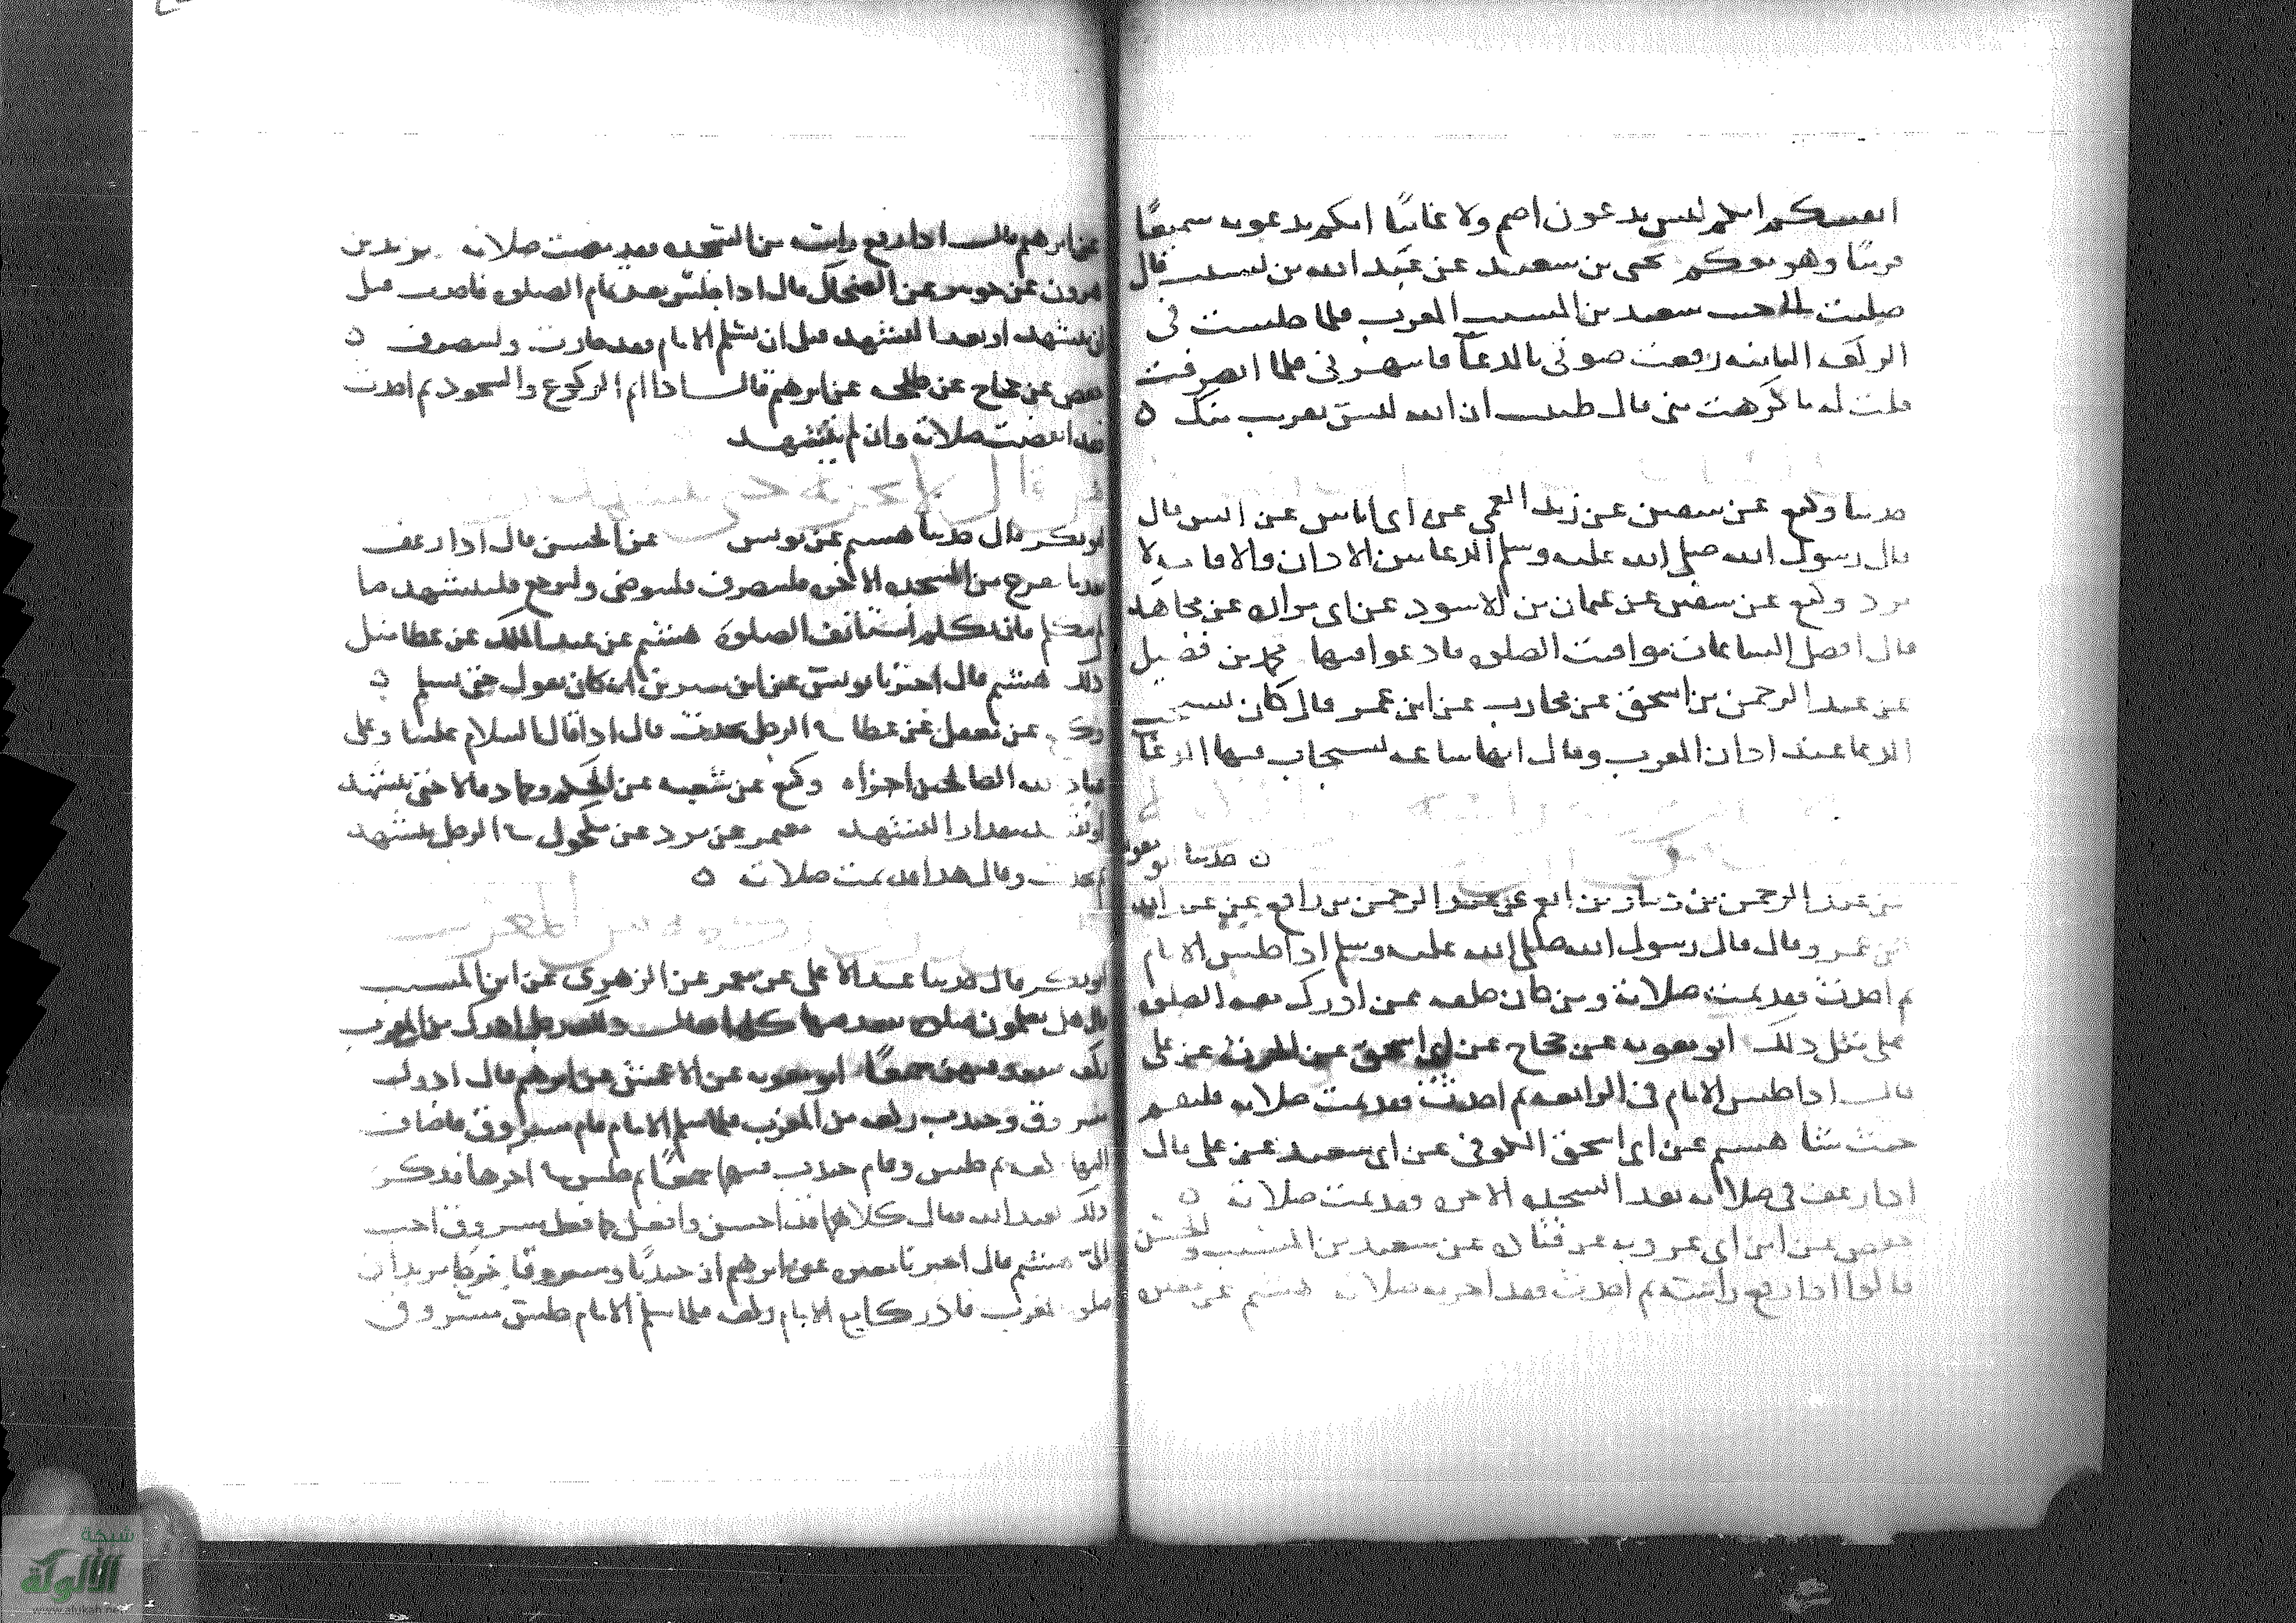 انفسكم انكم ليس يدعون اصم ولا غائبا انكم يدعونه سميعا
قريبا وهو معكم يحيى بن سعيد عن عبد الله بن نسيب قال
صليت الى جنب سعيد بن المسيب المغرب فلما جلست في
الركعة الثانية رفعت صوتي بالدعاء فانتهرني فلما انصرفت
قلت له ما كرهت مني قال ظننت ان الله ليس بقريب منك ه
حدثنا وكيع عن سفين عن زيد العمي عن ابي اياس عن انس قال
قال رسول الله صلى الله عليه وسلم الدعا بين الاذان والاقامة لا
يرد وكيع عن سفين عن عثمان بن الاسود عن مجاهد
قال افضل الساعات مواقيت الصلوة فادعوا فيها محمد بن فضيل
عن عبد الرحمن بن اسحق عن محارب عن ابن عمر قال كان يستحب
الدعا عند اذان المغرب وقال انها ساعة يستجاب فيها الدعا
ه حدثنا ابو معوية
عن عبد الرحمن بن زياد بن انعم عن عبد الرحمن بن رافع عن عبد الله
ابن عمرو قال قال رسول الله صلى الله عليه وسلم اذا جلس الامام
ثم احدث فقد تمت صلاته ومن كان خلفه ممن ادرك معه الصلوة
على مثل ذلك ابو معوية عن حجاج عن ابي اسحق عن الحرث عن علي
قال اذا جلس الامام في الرابعة ثم احدث فقد تمت صلاته فليقم
حيث شا هشيم عن ابي اسحق الكوفي عن ابي سعيد عن علي قال
اذا رعف في صلاته بعد السجدة الاخرة فقد تمت صلاته ه
حفص عن ابن ابي عروبة عن قتادة عن سعيد بن المسيب والحسن
قالوا اذا رفع راسه ثم احدث فقد اجزته صلاته هشيم عن مغيرة
عن ابرهيم قال اذا رفع راسه من السجدة فقد مضت صلاته يزيد بن
هرون عن جويبر عن الضحاك قال اذا جلس بعد تمام الصلوة فاحدث قبل
ان يتشهد او بعد التشهد قبل ان يسلم الامام فقد جازت ولينصرف ه
حفص عن حجاج عن طلحة عن ابرهيم قال اذا اتم الركوع والسجود ثم احدث
فقد انقضت صلاته وان لم يتشهد
ابو بكر قال حدثنا هشيم عن يونس عن الحسن قال اذا رعف
بعد ما يخرج من السجدة الاخرة فلينصرف فليتوضى وليرجع فليتشهد ما
لم يتكلم فان تكلم استانف الصلوة هشيم عن عبد الملك عن عطا مثل
ذلك هشيم قال اخبرنا يونس عن ابن سيرين انه كان يقول حتى يسلم ه
وكيع عن عن عطا في الرجل يحدث قال اذا قال السلام علينا وعلى
عباد الله الصالحين اجزاه وكيع عن شعبة عن الحكم وحماد قالا حتى يتشهد
او يقعد مقدار التشهد معمر عن برد عن مكحول في الرجل يتشهد
ثم يحدث وقال هذا قد تمت صلاته ه
ابو بكر قال حدثنا عبد الاعلى عن معمر عن الزهري عن ابن المسيب
قال هل تعلمون صلوة يقعد فيها كلها قال ذلك رجل ادرك من المغرب
ركعة يقعد فيهن جميعا ابو معوية عن الاعمش عن ابرهيم قال ادرك
مسروق وجندب ركعة من المغرب فلما سلم الامام قام مسروق فاضاف
اليها ركعة ثم جلس وقام جندب فيهما جميعا ثم جلس في اخرها فذكر
ذلك لعبد الله فقال كلاهما قد احسن وافعل كما فعل مسروق احب
الي هشيم قال اخبرنا مغيرة عن ابرهيم ان جندبا ومسروقا خرجا يريدان
صلوة المغرب فادركا مع الامام ركعة فلما سلم الامام جلس مسروق
شبكة
الألوكة
www.alukah.net